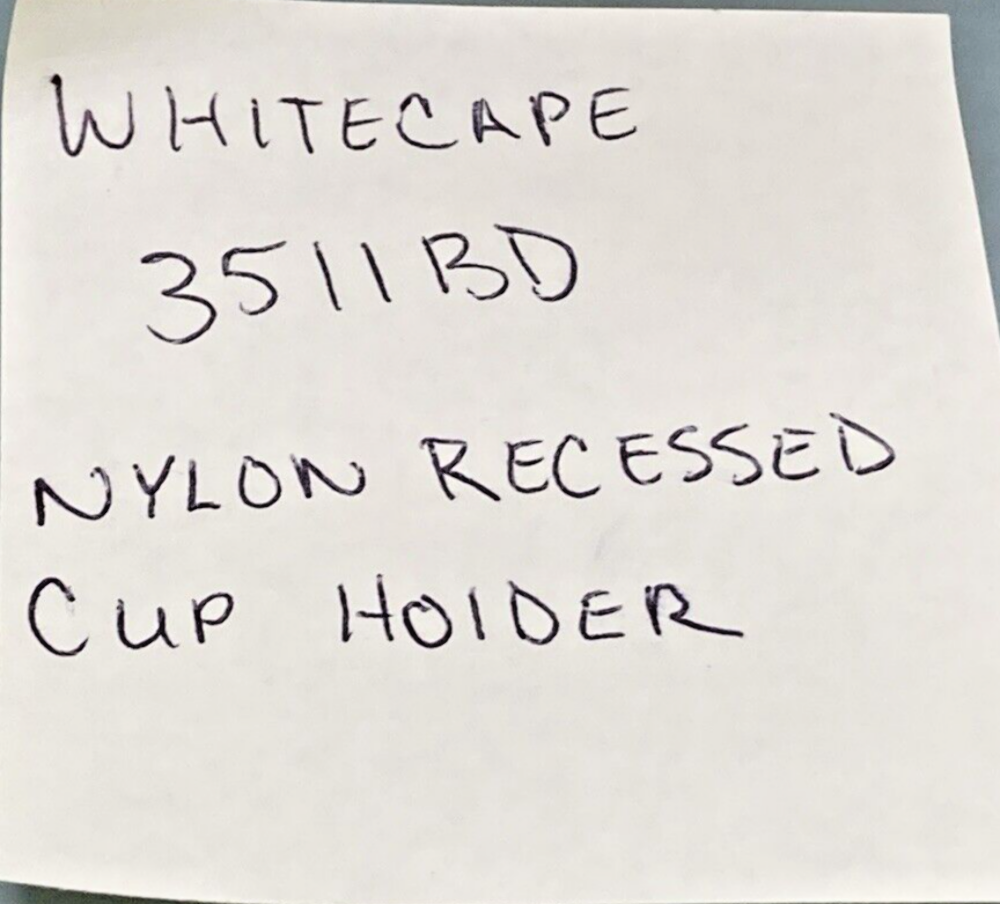 WHITECAPE
3511BD
NYLON RECESSED
CUP HOlDER